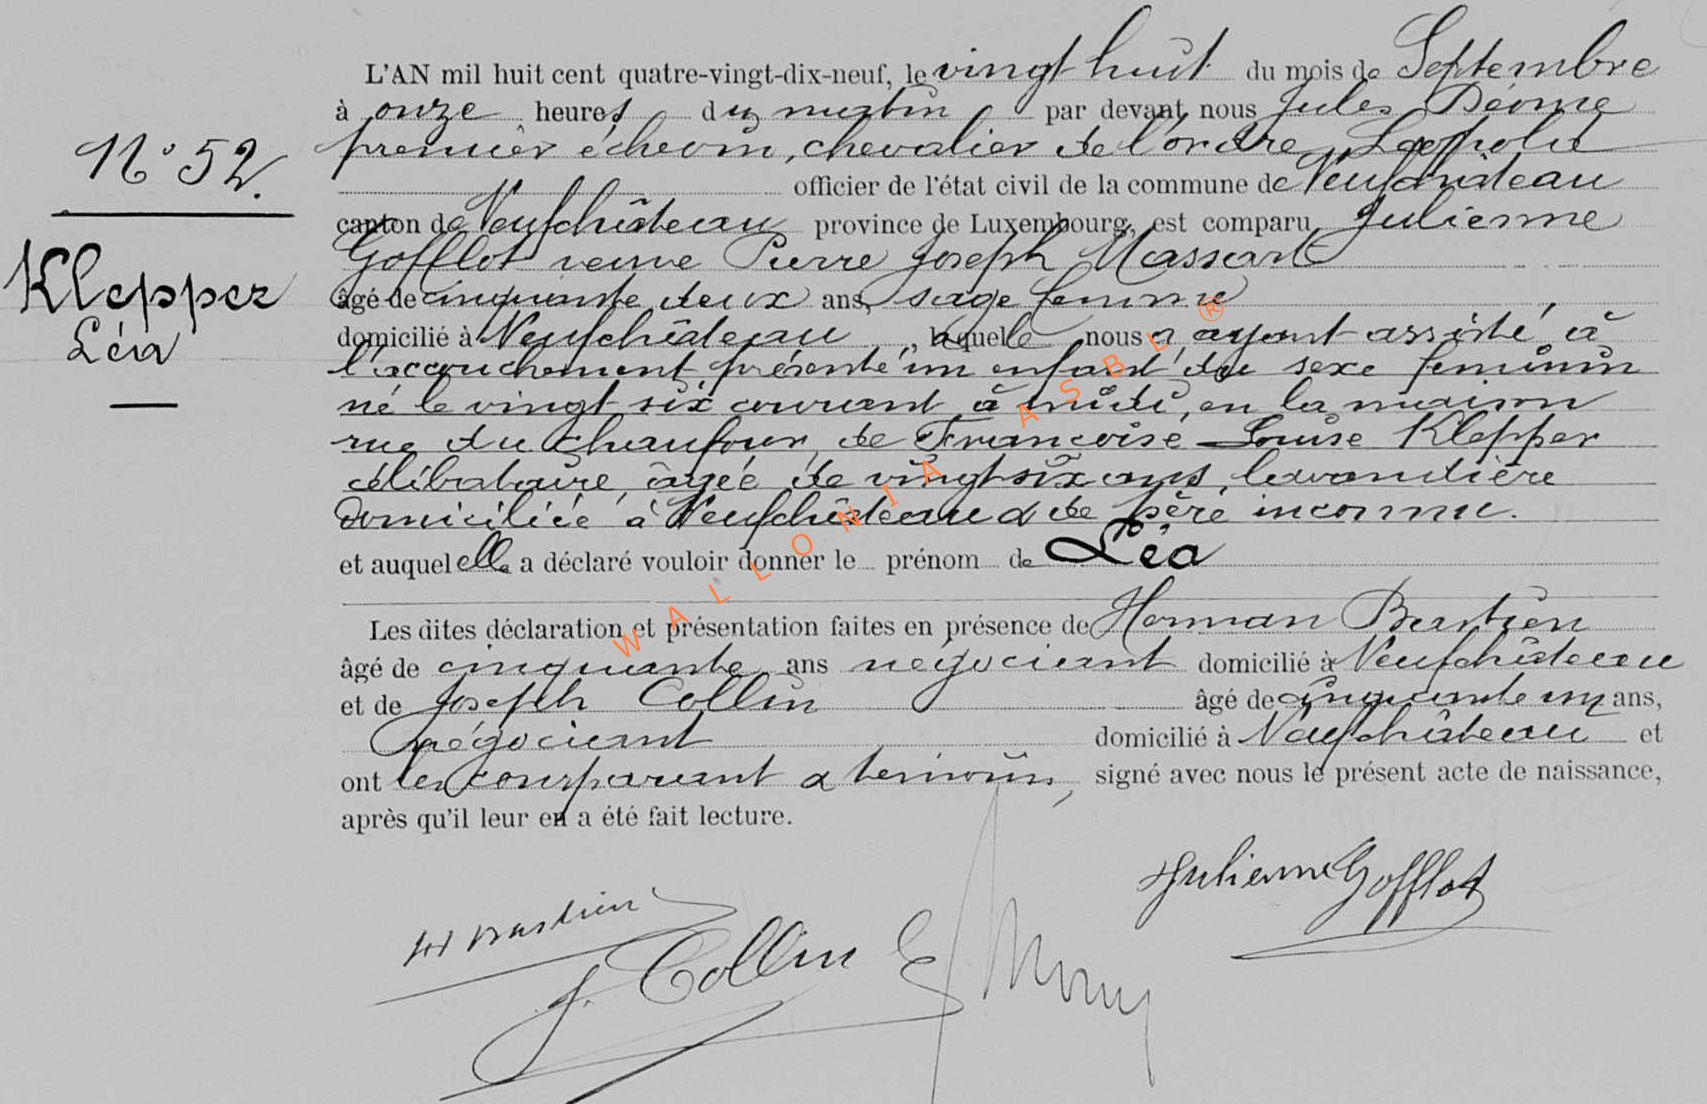 N° 52.
Klepper
Léa
L'AN mil huit cent quatre-vingt-dix-neuf, le vingt huit du mois de Septembre
à onze heures du matin par devant nous Jules
premier échevin, chevalier de l'ordre Léopold
officier de l'état civil de la commune de Neufchâteau
canton de Neufchâteau province de Luxembourg, est comparu Julienne
Gofflot veuve Pierre Joseph Massard
âgé de cinquante deux ans, sage femme
domicilié à Neufchâteau, laquelle nous a, ayant assisté à
l'accouchement, présenté un enfant du sexe féminin
né le vingt six courant à midi, en la maison
rue du Chaufour, de Françoise Louise Klepper
célibataire, âgée de vingt six ans, lavandière
domiciliée à Neufchâteau & de père inconnu.
et auquel elle a déclaré vouloir donner le prénom de Léa
Les dites déclaration et présentation faites en présence de Herman Bastien
âgé de cinquante ans négociant domicilié à Neufchâteau
et de Joseph Collin âgé de cinquante un ans,
négociant domicilié à Neufchâteau et
ont les comparant & témoins, signé avec nous le présent acte de naissance,
après qu'il leur en a été fait lecture.
Julienne Gofflot
H Bastien
J. Collin
WALLONIA ASBL ®